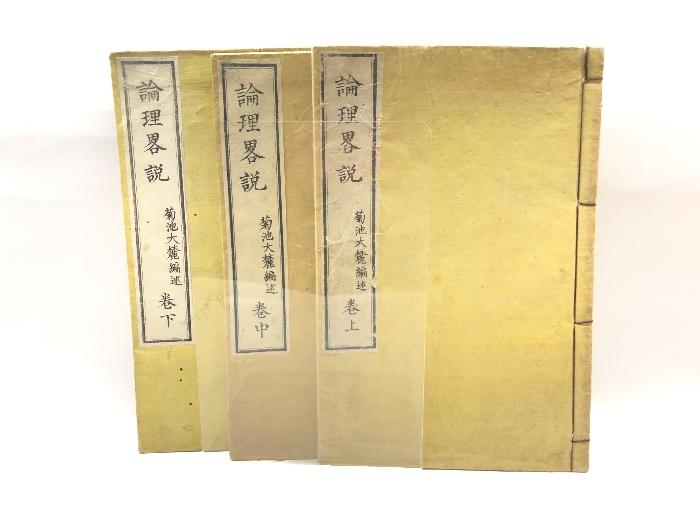 論理畧説
菊池大麓編述
巻上
論理畧説
菊池大麓編述
巻中
論理畧説
菊池大麓編述
巻下